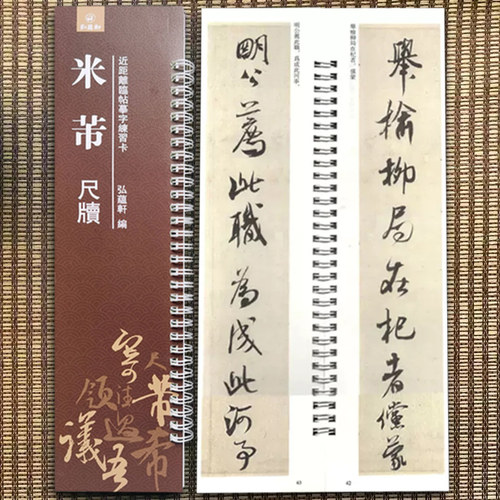 米芾 尺牘
近距離臨帖摹字練習卡
弘蘊軒 編
舉榆柳局在杞者，儻蒙
舉榆柳局在杞者儻蒙
42
明公薦此職，爲成此河事。
明公薦此職為成此河事
43